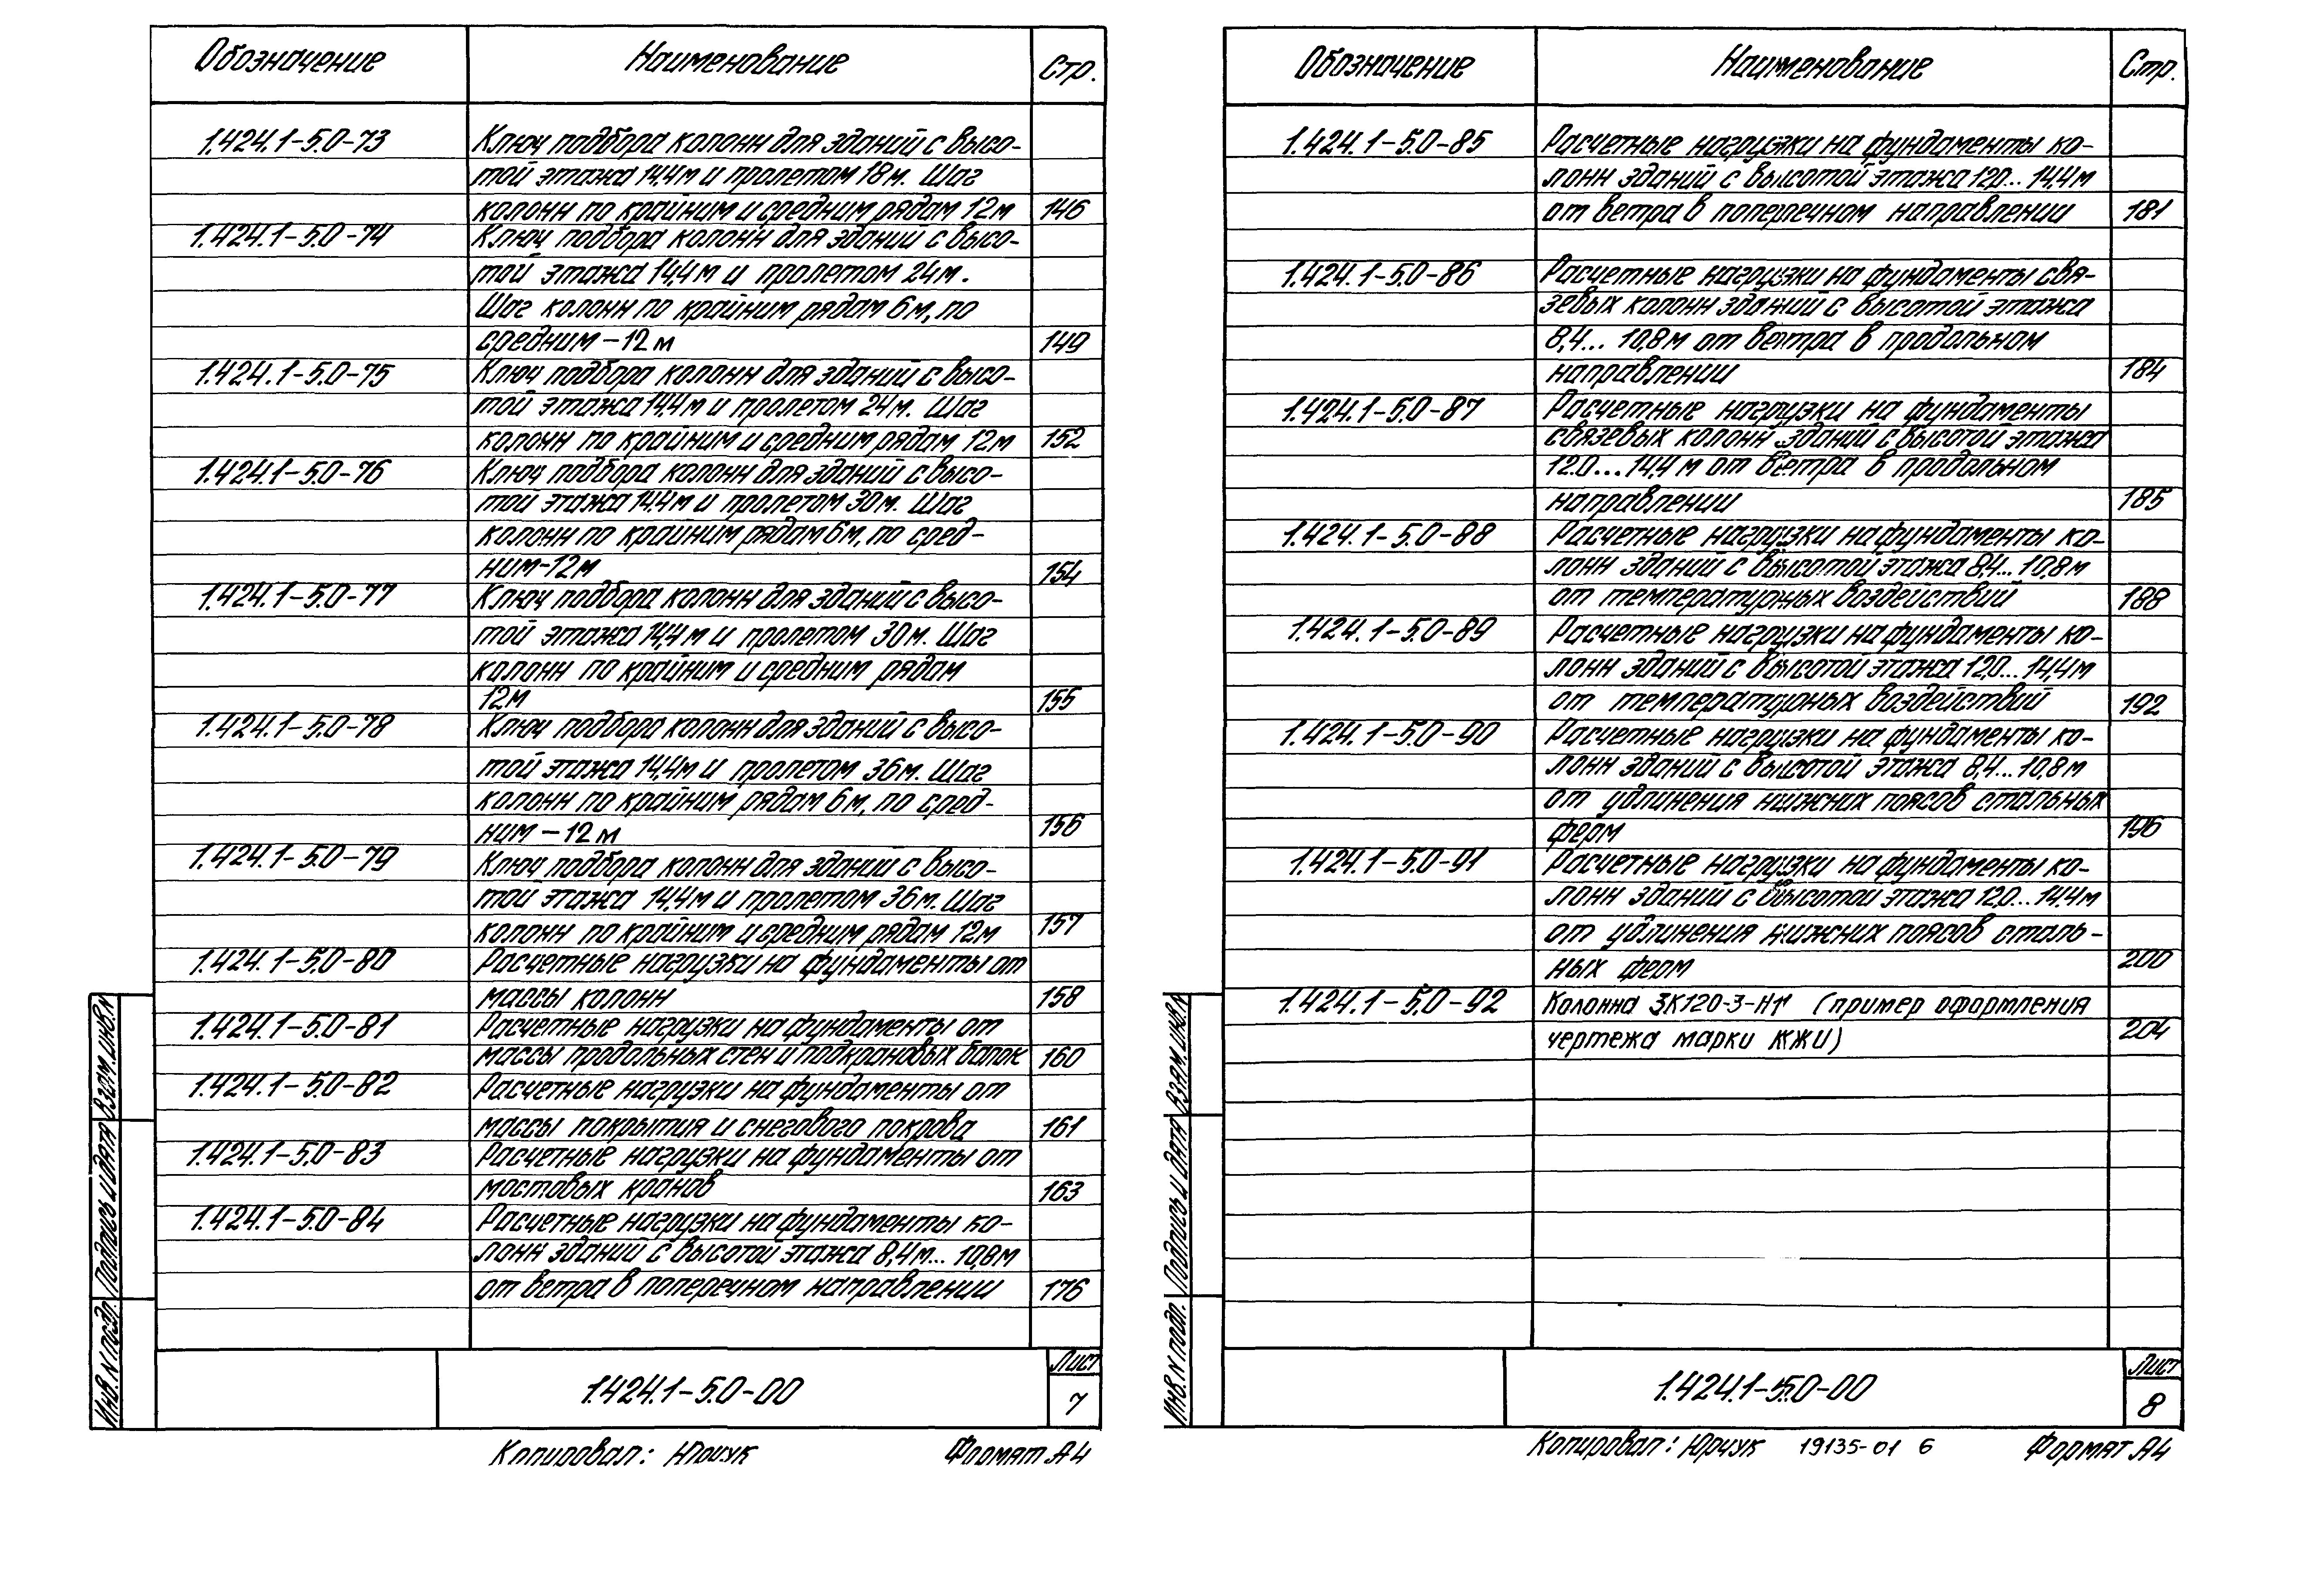 Обозначение Наименование Стр.
1.424.1-5.0-73 Ключ подбора колонн для зданий с высо-
той этажа 14,4м и пролетом 18м. Шаг
колонн по крайним и средним рядам 12м 146
1.424.1-5.0-74 Ключ подбора колонн для зданий с высо-
той этажа 14,4м и пролетом 24м.
Шаг колонн по крайним рядам 6м, по
средним-12м 149
1.424.1-5.0-75 Ключ подбора колонн для зданий с высо-
той этажа 14,4м и пролетом 24м. Шаг
колонн по крайним и средним рядам 12м 152
1.424.1-5.0-76 Ключ подбора колонн для зданий с высо-
той этажа 14.4м и пролетом 30м. Шаг
колонн по крайним рядам 6м, по сред-
ним-12м 154
1.424.1-5.0-77 Ключ подбора колонн для зданий с высо-
той этажа 14,4м и пролетом 30м. Шаг
колонн по крайним и средним рядам
12м 155
1.424.1-5.0-78 Ключ подбора колонн для зданий с высо-
той этажа 14,4м и пролетом 36м. Шаг
колонн по крайним рядам 6м, по сред-
ним-12м 156
1.424.1-5.0-79 Ключ подбора колонн для зданий с высо-
той этажа 14,4м и пролетом 36м. Шаг
колонн по крайним и средним рядам 12м 157
1.424.1-5.0-80 Расчетные нагрузки на фундаменты от
массы колонн 158
1.424.1-5.0-81 Расчетные нагрузки на фундаменты от
массы продольных стен и подкрановых балок 160
1.424.1-5.0-82 Расчетные нагрузки на фундаменты от
массы покрытия и снегового покрова 161
1.424.1-5.0-83 Расчетные нагрузки на фундаменты от
мостовых кранов 163
1.424.1-5.0-84 Расчетные нагрузки на фундаменты ко-
лонн зданий с высотой этажа 8,4м... 10,8м
от ветра в поперечном направлении 176
Взам. инв. N
Подпись и дата
Инв. N подл.
1.424.1-5.0-00
Лист
7
Копировал: Юрчук Формат А4
Обозначение Наименование Стр.
1.424.1-5.0-85 Расчетные нагрузки на фундаменты ко-
лонн зданий с высотой этажа 12,0... 14,4м
от ветра в поперечном направлении 181
1.424.1-5.0-86 Расчетные нагрузки на фундаменты свя-
зевых колонн зданий с высотой этажа
8,4... 10,8м от ветра в продольном
направлении 184
1.424.1-5.0-87 Расчетные нагрузки на фундаменты
связевых колонн зданий с высотой этажа
12.0...14,4м от ветра в продольном
направлении 185
1.424.1-5.0-88 Расчетные нагрузки на фундаменты ко-
лонн зданий с высотой этажа 8,4... 10,8м
от температурных воздействий 188
1.424.1-5.0-89 Расчетные нагрузки на фундаменты ко-
лонн зданий с высотой этажа 12,0... 14,4м
от температурных воздействий 192
1.424.1-5.0-90 Расчетные нагрузки на фундаменты ко-
лонн зданий с высотой этажа 8,4...10,8м
от удлинения нижних поясов стальных
ферм 196
1.424.1-5.0-91 Расчетные нагрузки на фундаменты ко-
лонн зданий с высотой этажа 12,0...14,4м
от удлинения нижних поясов сталь-
ных ферм 200
1.424.1-5.0-92 Колонна 3К120-3-Н1 (пример оформления
чертежа марки КЖИ) 204
Взам. инв. N
Подпись и дата
Инв. N подл.
1.424.1-5.0-00
Лист
8
Копировал: Юрчук 19135-01 6 Формат А4